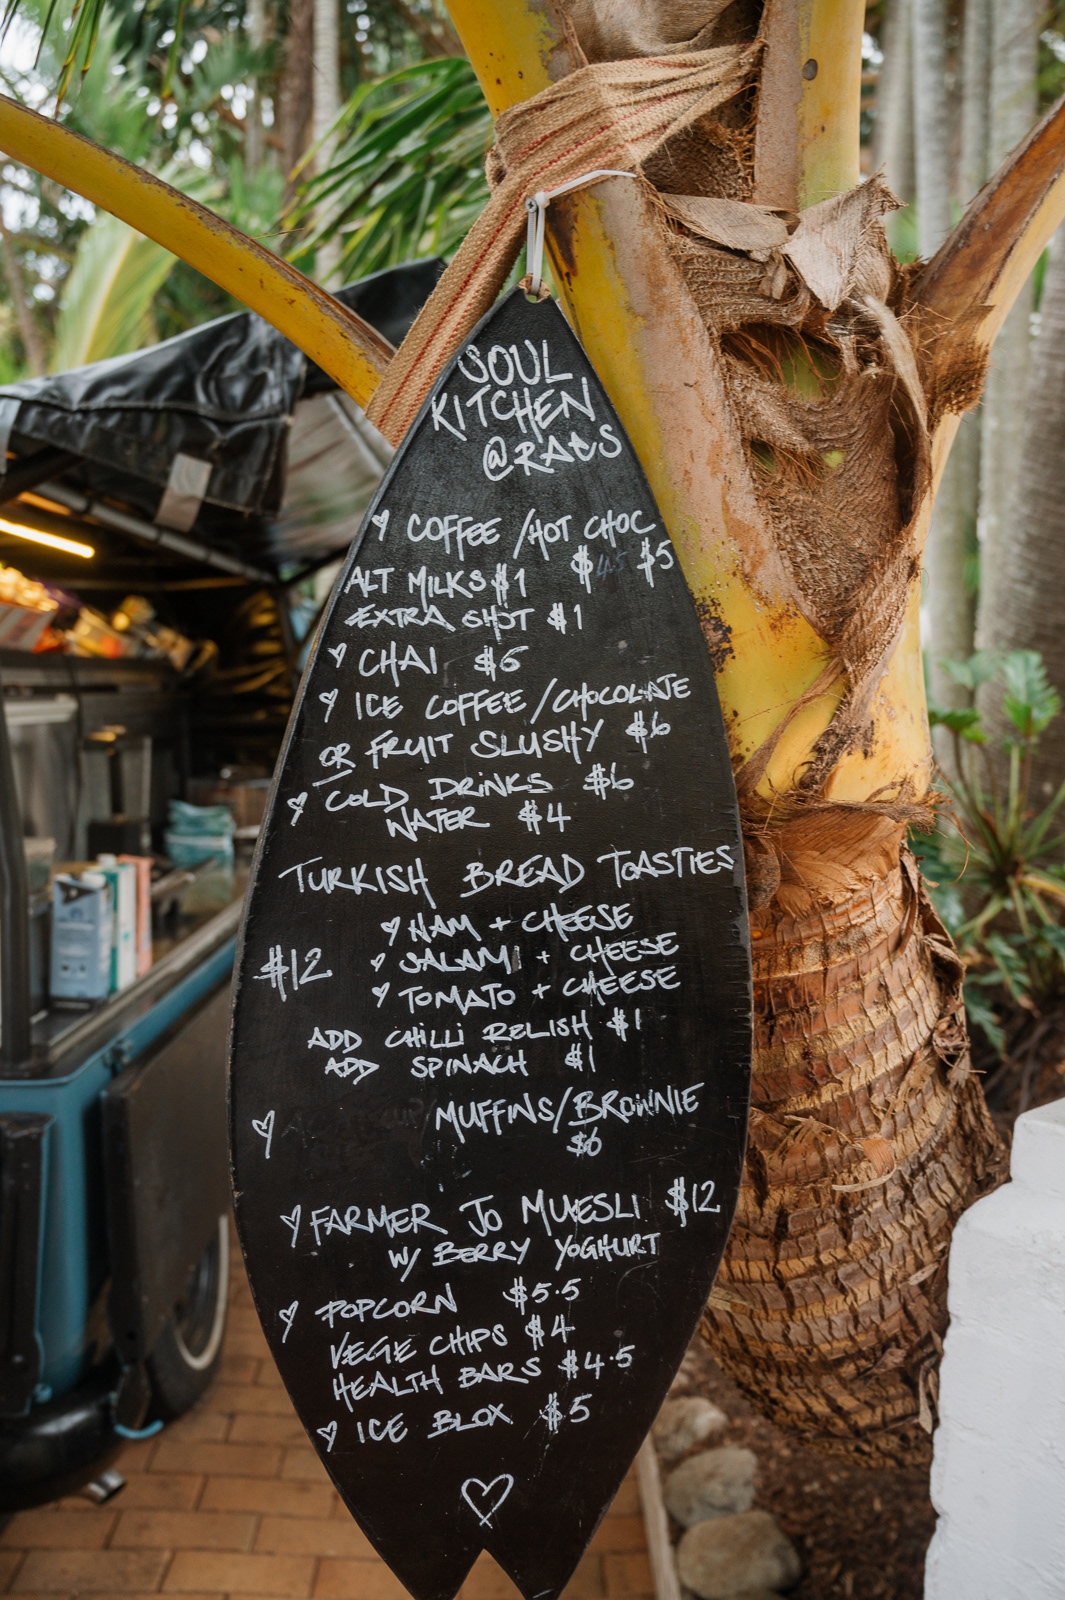 SOUL
KITCHEN
@RAES
COFFEE / HOT CHOC
$ 4.5 $5
ALT MILKS $1
EXTRA SHOT $1
CHAI $6
ICE COFFEE / CHOCOLATE
OR FRUIT SLUSHY $6
COLD DRINKS $6
WATER $4
TURKISH BREAD TOASTIES
HAM + CHEESE
$12 SALAMI + CHEESE
TOMATO + CHEESE
ADD CHILLI RELISH $1
ADD SPINACH $1
MUFFINS/BROWNIE
$6
FARMER JO MUESLI $12
W/ BERRY YOGHURT
POPCORN $5.5
VEGE CHIPS $4
HEALTH BARS $4.5
ICE BLOX $5